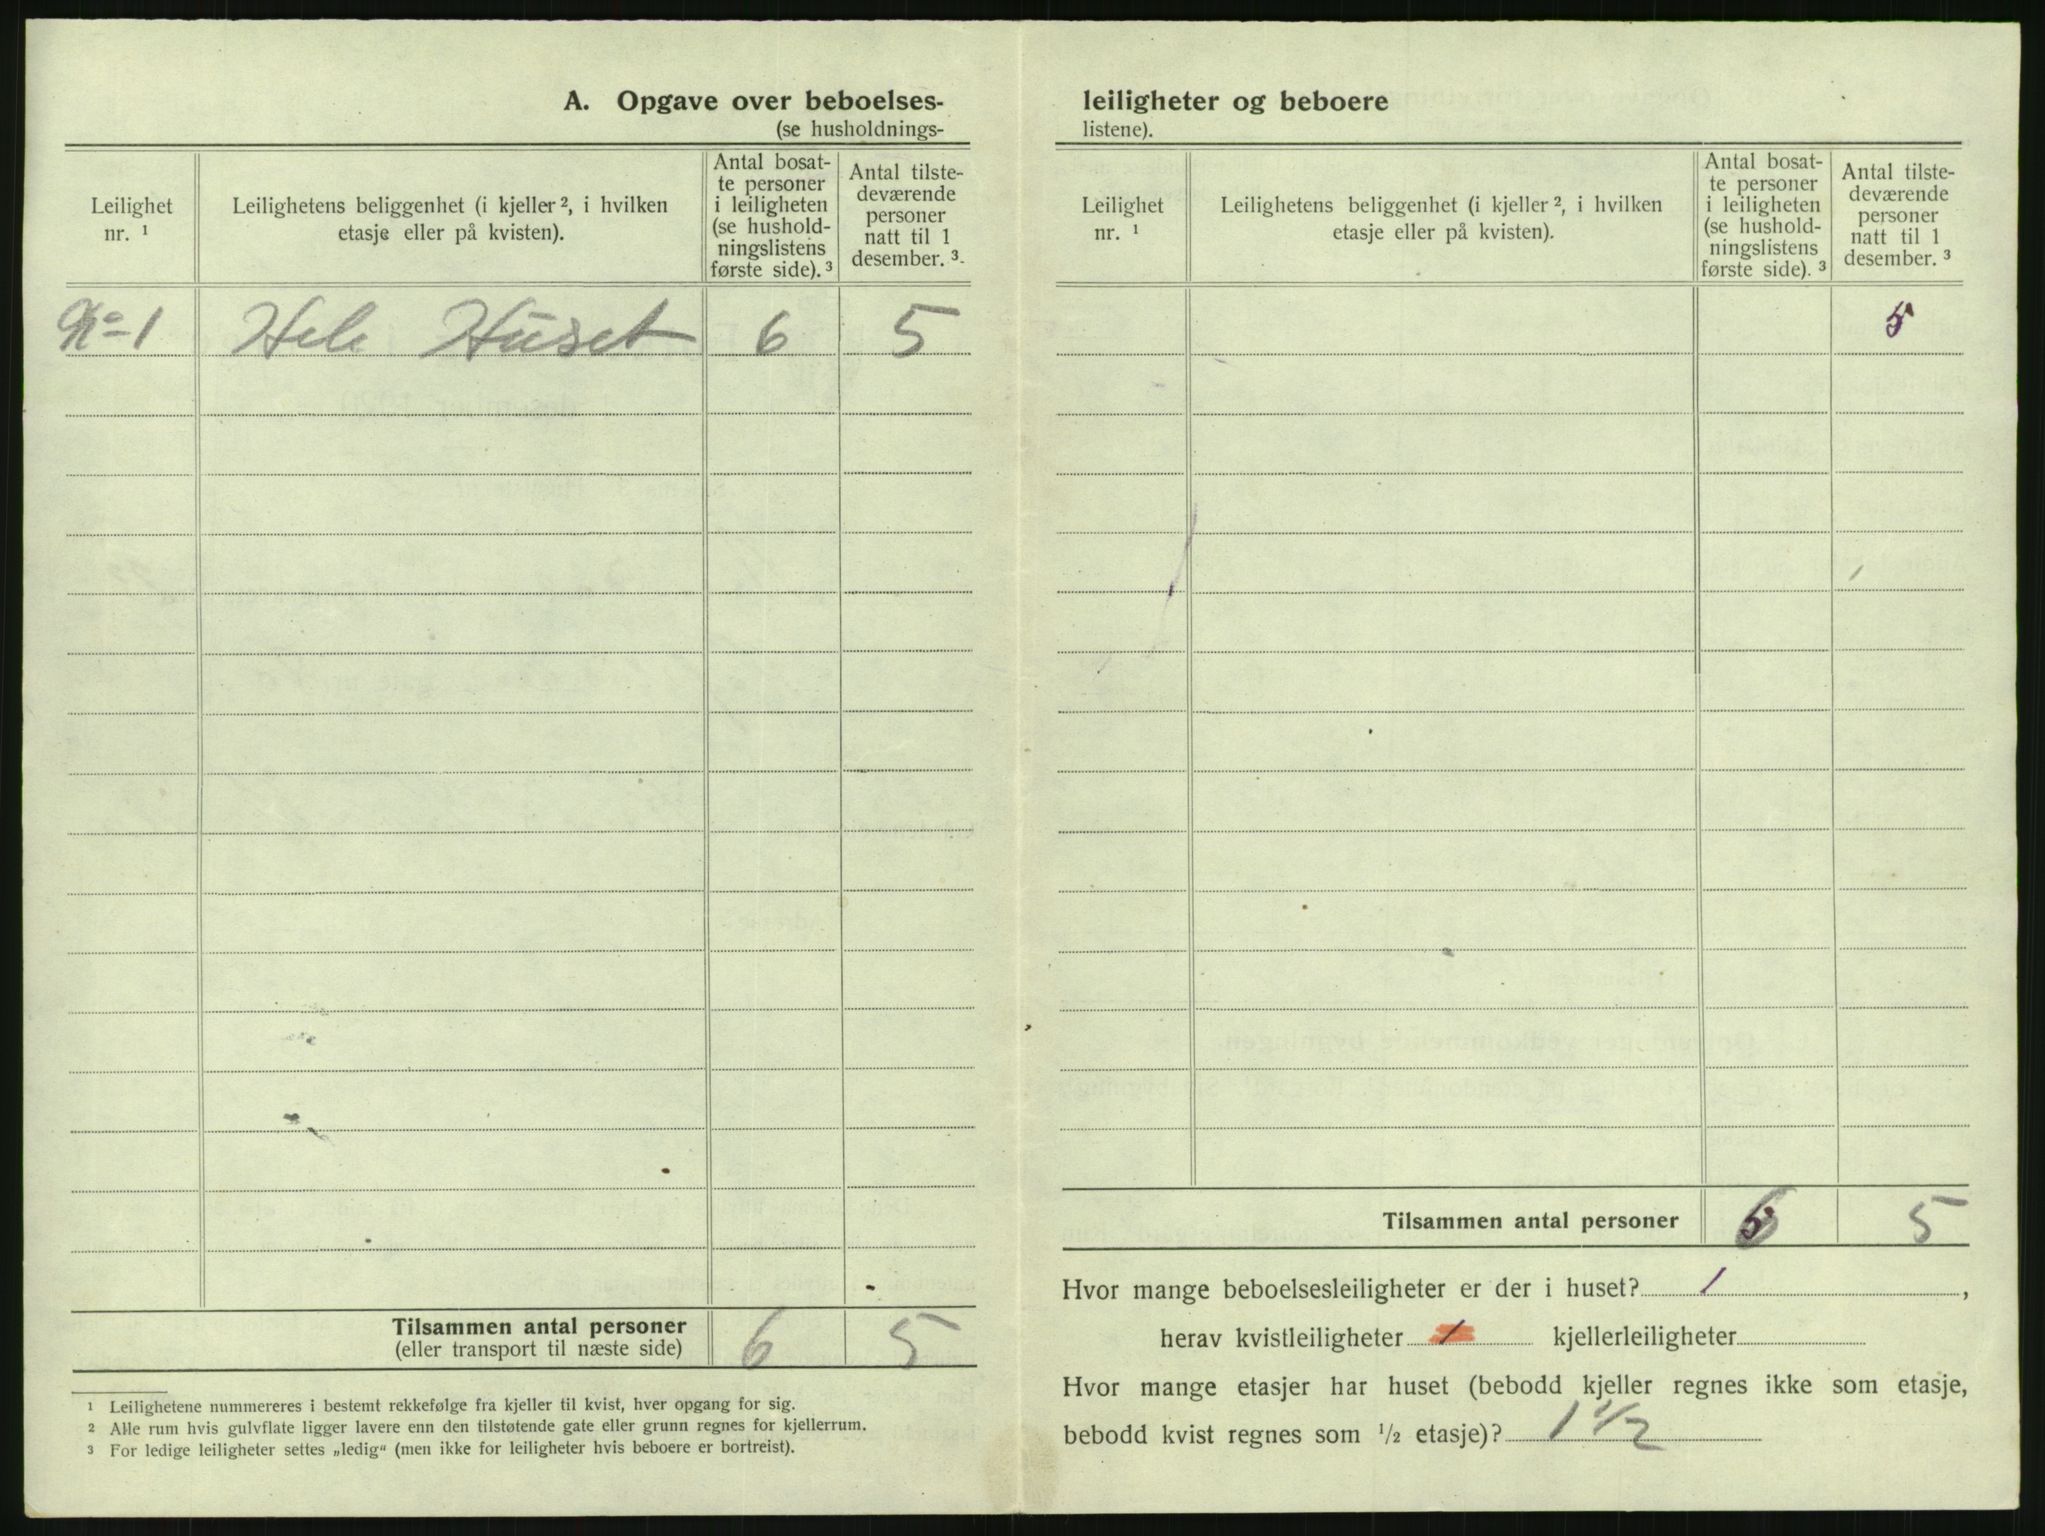 A. Opgave over beboelses-
(se husholdnings-
Leilighet
nr. ¹
Leilighetens beliggenhet (i kjeller ², i hvilken
etasje eller på kvisten).
Antal bosat-
te personer
i leiligheten
(se hushold-
ningslistens
første side). ³
Antal tilste-
deværende
personer
natt til 1
desember. ³.
No 1 Hele Huset 6 5
Tilsammen antal personer 6 5
(eller transport til næste side)
¹ Leilighetene nummereres i bestemt rekkefølge fra kjeller til kvist, hver opgang for sig.
² Alle rum hvis gulvflate ligger lavere enn den tilstøtende gate eller grunn regnes for kjellerrum.
³ For ledige leiligheter settes „ledig“ (men ikke for leiligheter hvis beboere er bortreist).
leiligheter og beboere
listene).
Leilighet
nr. ¹
Leilighetens beliggenhet (i kjeller ², i hvilken
etasje eller på kvisten).
Antal bosat-
te personer
i leiligheten
(se hushold-
ningslistens
første side). ³
Antal tilste-
deværende
personer
natt til 1
desember. ³
5
Tilsammen antal personer 6 5
Hvor mange beboelsesleiligheter er der i huset? 1 ,
herav kvistleiligheter 1 kjellerleiligheter
Hvor mange etasjer har huset (bebodd kjeller regnes ikke som etasje,
bebodd kvist regnes som ½ etasje)? 1 1/2